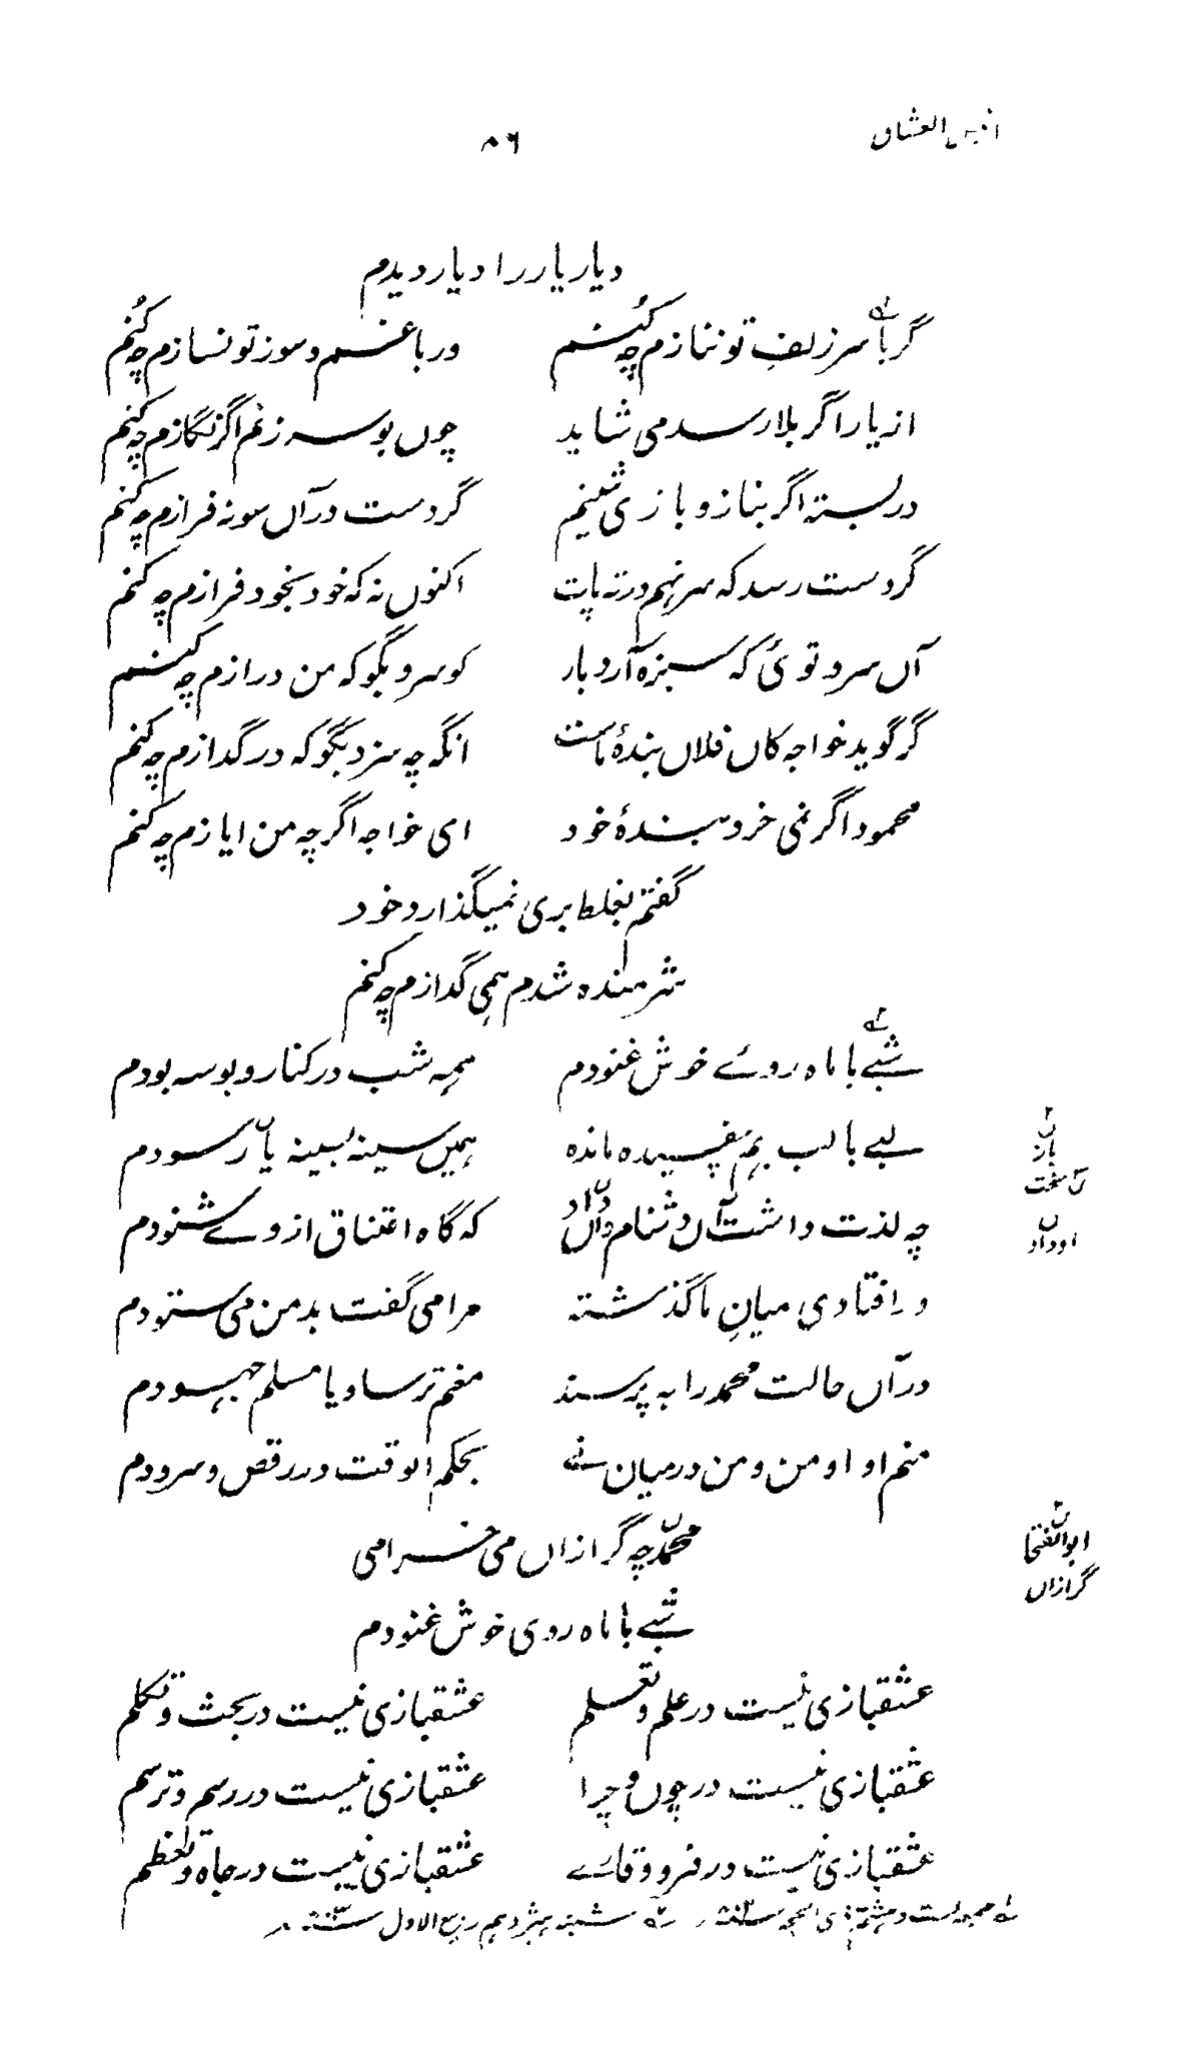 انیس العشاق ۸۶
دیار یار را دیار دیدم
گر با سر زلفِ تو ننازم چه کُنم ور با غم و سوز تو نسازم چه کُنم
از یار اگر بلا رسد می شاید چوں بوسه زنم اگر نگازم چه کنم
در بسته اگر بناز و بازی شینم گر دست در آں سو نه فرازم چه کنم
گر دست رسد که سر نهم در ته پات اکنوں نه که خود بخود فرازم چه کنم
آں سرو توئی که سبزه آرد بار کو سرو بگو که من درازم چه کنم
گر گوید خواجه کاں فلاں بندۂ ماست انگه چه سزد بگو که در گدازم چه کنم
محمود اگر نمی خرد بندۂ خود ای خواجه اگرچه من ایازم چه کنم
گفتم بغلط بری نمیگذارد خود
شرمنده شدم همی گدازم چه کنم
شبے با ماه روئے خوش غنودم همه شب در کنار و بوسه بودم
لبے با لب بهم چفسیده مانده همیں سینه بسینه یار سودم
باز
سخت
چه لذت داشت آں دشنام داں که گاه اعتناق از وے شنودم
او داد
ور افتادی میانِ ما گذشته مرا می گفت بد من می ستودم
در آں حالت محمد را به پرسند مغم ترسا و یا مسلم جهودم
منم او او من و من درمیان نے بحکم الوقت در رقص و سرودم
محمد چه گرازاں می خرامی
ابوالفتحا
گرازاں
شبے با ماه روی خوش غنودم
عشقبازی نیست در علم و تعلم عشقبازی نیست در بحث و تکلم
عشقبازی نیست در چوں و چرا عشقبازی نیست در رسم و ترسم
عشقبازی نیست در فر و وقارے عشقبازی نیست در جاه و تعظم
جمعه بست و هشتم ذی الحجه شنبه هژدهم ربیع الاول